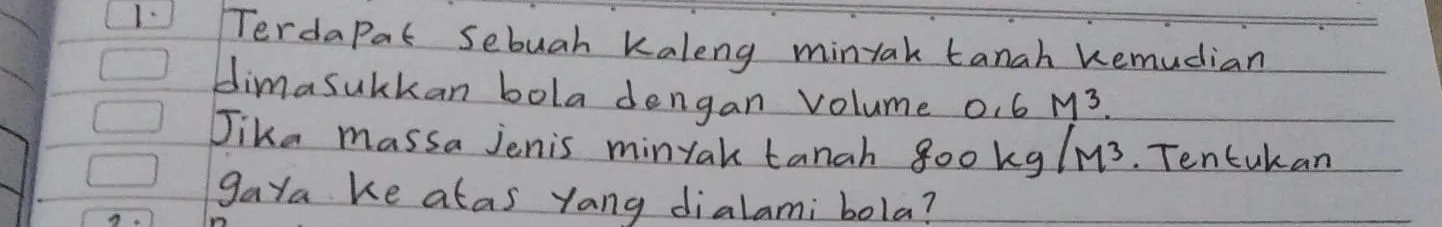 1. Terdapat sebuah kaleng minyak tanah kemudian
dimasukkan bola dengan volume 0,6 M³.
Jika massa jenis minyak tanah 800 kg/M³. Tentukan
gaya ke atas yang dialami bola?
2.